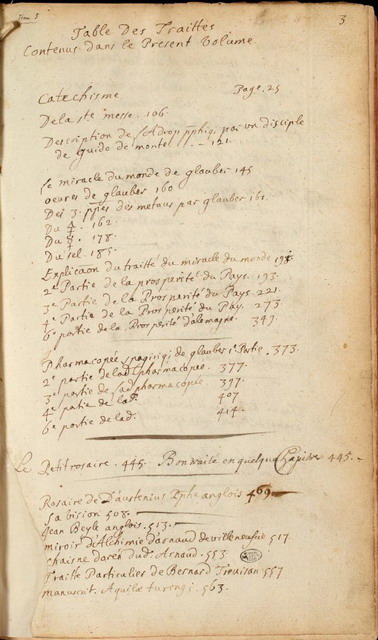 3
Table Des Traittes
Contenus dans le Present Volume.
Catechisme Page. 25
De la ste messe. 106
Description de pphiq par un disciple
de guido de montel - 121
Le miracle du monde de glauber 145
oeures de glauber 160
Des 3. ppes des metaux par glauber 161
Du 🜍. 162
Du ☿. 178.
Du sel. 185.
Explicaon du traitté du miracle du monde 191
2e Partie de la prosperité du Pays. 193.
3e Partie de la Prosperité du Pays. 221.
4e Partie de la Prosperité du Pay. 273
6e partie de la Prosperité d'alemagne. 349.
Pharmacopée spagiriq de glauber 1e Partie. 373.
2e partie de lad. pharmacopée. 377.
3e partie de lad pharmacopée 397.
4e partie de lad. 407
6e partie de lad. 414.
Le Petit rosaire. 445. Bon traité en quelque Chapitre 445.
Rosaire de Daustenius Pphe anglois 469
Sa vision 508.
Jean Beyle anglois. 513.
miroir d'Alchimie d'arnaud de villeneufue 517
chaisne dorée dud. Arnaud. 553
Traitté Particulier de Bernard Trevisan 557
manuscrit. Aquilae turengi. 563.